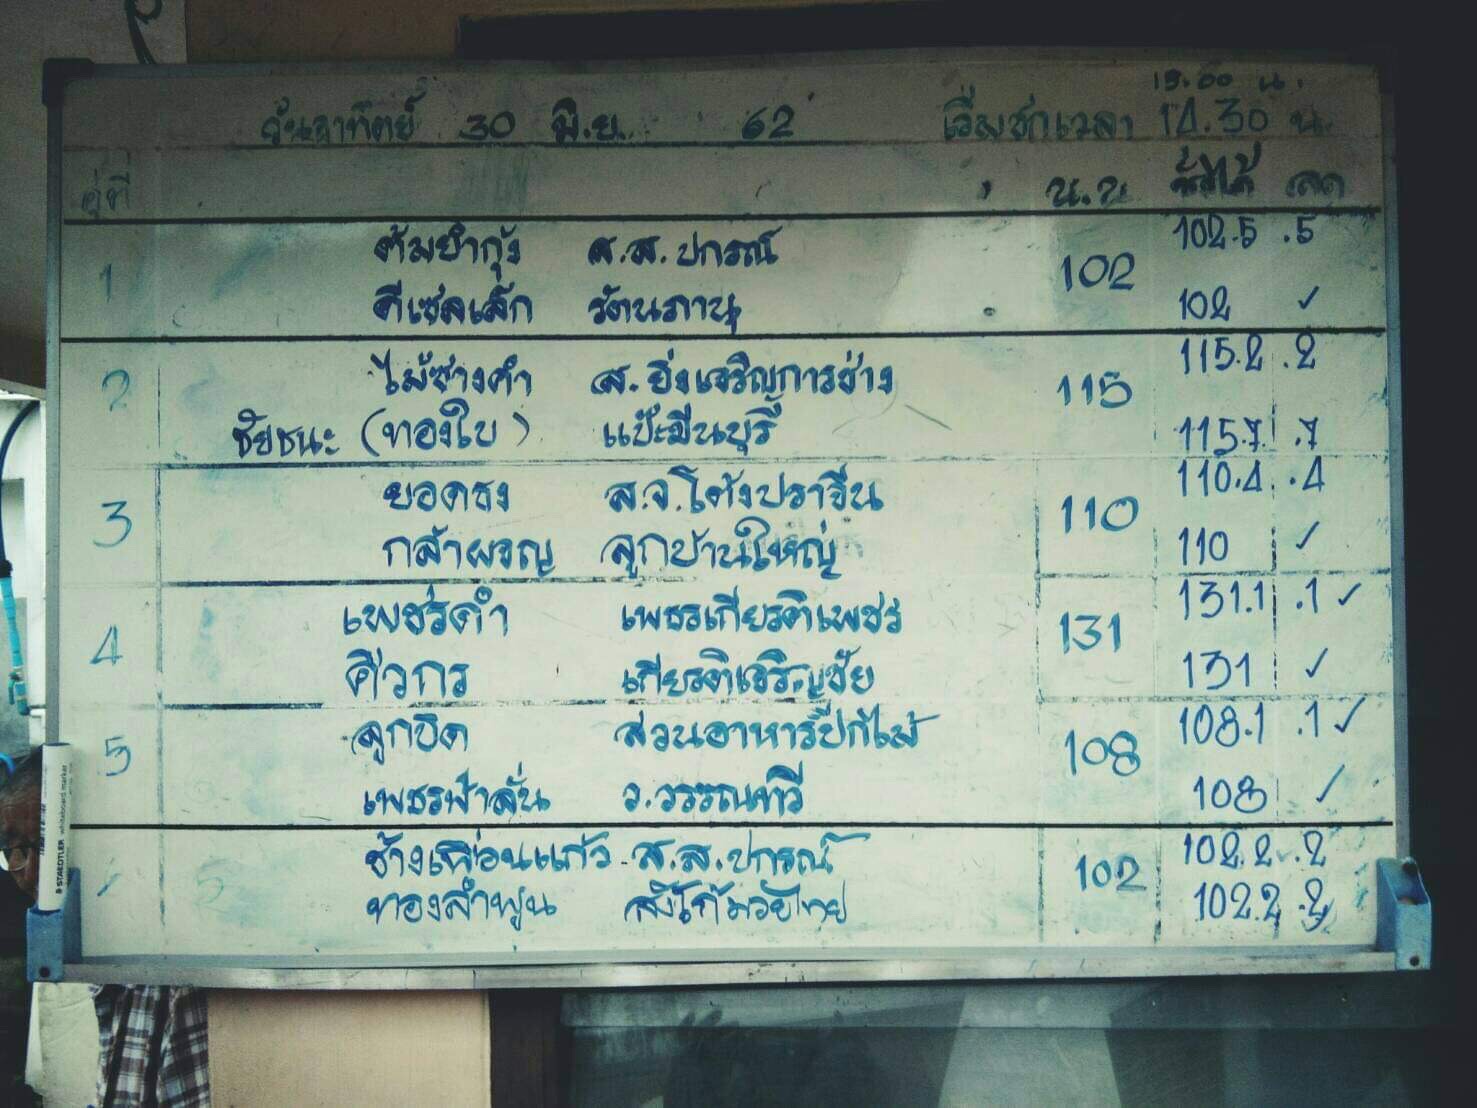 15.00 น.
วันอาทิตย์ 30 มิ.ย. 62 เริ่มชกเวลา 14.30 น.
คู่ที่ น.น ชั่งได้ ลด
ต้มยำกุ้ง ส.ส.ปกรณ์ 102.5 .5
1 102
ดีเซลเล็ก รัตนภานุ 102 ✓
ไม้ซางคำ ส.ยิ่งเจริญการช่าง 115.2 .2
2 115
ชัยชนะ (ทองใบ) แป๊ะมีนบุรี 115.7 .7
ยอดธง ส.จ.โต้งปราจีน 110.4 .4
3 110
กล้าผจญ ลูกบ้านใหญ่ 110 ✓
เพชรคำ เพชรเกียรติเพชร 131.1 .1 ✓
4 131
ศิวกร เกียรติเจริญชัย 131 ✓
ลูกปัด สวนอาหารปีกไม้ 108.1 .1 ✓
5 108
เพชรฟ้าลั่น ว.วรรณทวี 108 ✓
ช้างเผื่อนแก้ว ส.ส.ปกรณ์ 102.2 .2
102
ทองลำพูน มวยไทย 102.2 .2
STAEDTLER whiteboard marker